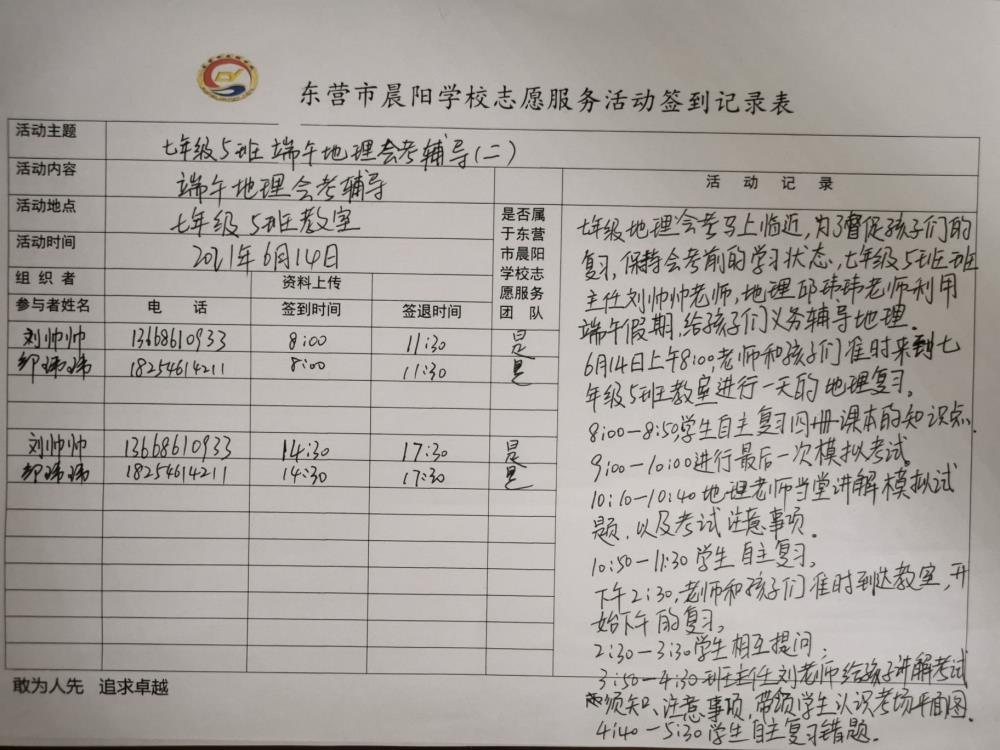 东营市晨阳学校志愿服务活动签到记录表
活动主题 七年级5班端午地理会考辅导(二)
活动内容 端午地理会考辅导
活动地点 七年级5班教室
活动时间 2021年6月14日
组织者 资料上传
参与者姓名 电话 签到时间 签退时间
是否属
于东营
市晨阳
学校志
愿服务
团队
刘帅帅 13668610933 8:00 11:30 是
邱琦琦 18254614211 8:00 11:30 是
刘帅帅 13668610933 14:30 17:30 是
18254614211 14:30 17:30 是
活动记录
七年级地理会考马上临近,为了督促孩子们的
复习,保持会考前的学习状态,七年级5班班
主任刘帅帅老师,地理老师利用
端午假期,给孩子们义务辅导地理.
6月14日上午8:00,老师和孩子们准时来到七
年级5班教室进行一天的地理复习.
8:00-8:50,学生自主复习四册课本的知识点.
9:00-10:00进行最后一次模拟考试.
10:10-10:40地理老师当堂讲解模拟试
题,以及考试注意事项.
10:50-11:30学生自主复习.
下午2:30,老师和孩子们准时到达教室,开
始下午的复习.
2:30-3:30学生相互提问,
3:50-4:30班主任刘老师给孩子讲解考试
须知、注意事项,带领学生认识考场平面图.
4:40-5:30学生自主复习错题.
敢为人先 追求卓越